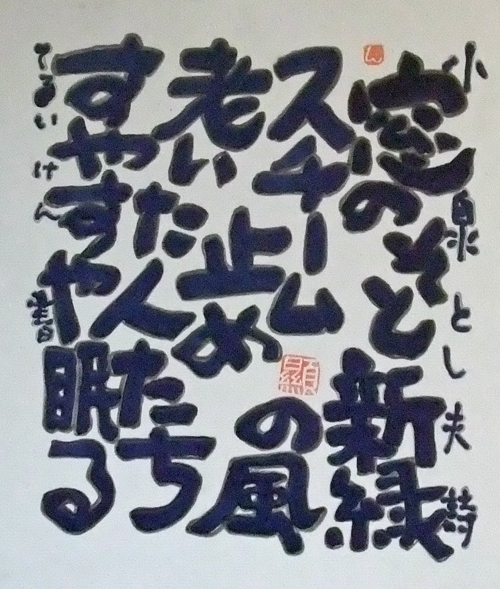 小泉とし夫 詩
窓のそと新緑
の風
スチーム
止め
老い
た人たち
すやすや眠る
てるい けん 書